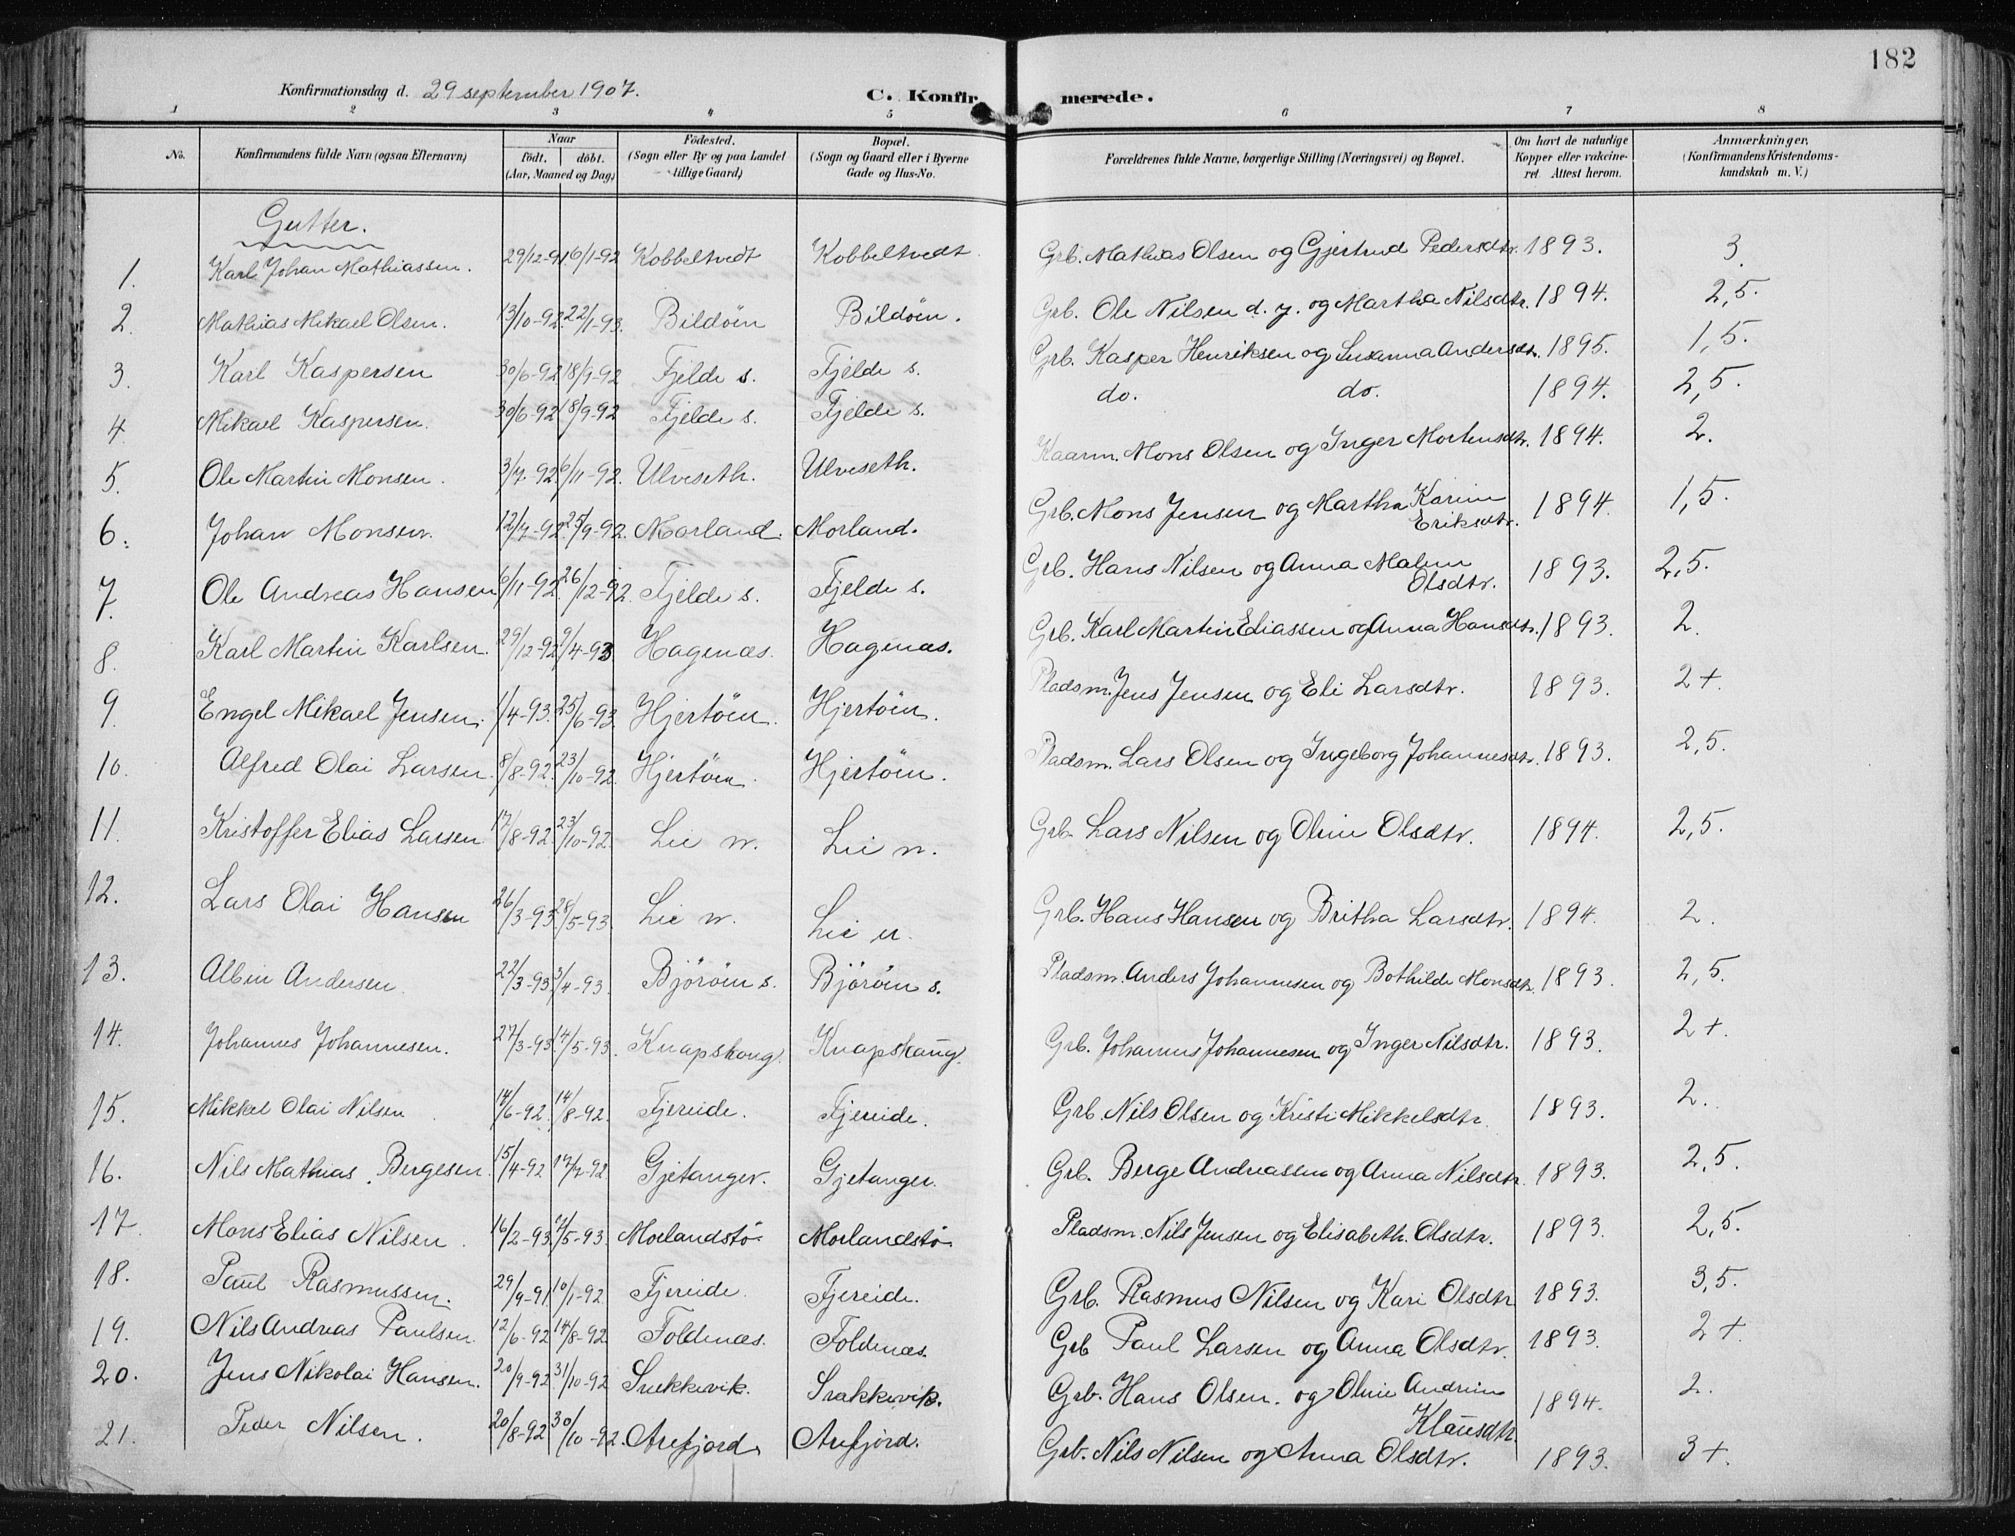 182
Konfirmationsdag d. 29 september 1907.
C. Konfirmerede.
1 2 3 4 5 6 7 8
No. | Konfirmandens fulde Navn (ogsaa Efternavn) | Naar födt. döbt. (Aar, Maaned og Dag) | Födested. (Sogn eller By og paa Landet tillige Gaard) | Bopæl. (Sogn og Gaard eller i Byerne Gade og Hus-No. | Forældrenes fulde Navne, borgerlige Stilling (Næringsvei) og Bopæl. | Om havt de naturlige Kopper eller vakcineret. Attest herom. | Anmærkninger. (Konfirmandens Kristendomskundskab m. V.)
Gutter.
1. Karl Johan Mathiassen. 29/12-91 6/1-92 Kobbeltvedt Kobbeltvedt Grb. Mathias Olsen og Gjertrud Pedersdtr. 1893. 3.
2. Mathias Mikael Olsen. 13/10-92. 22/1-93. Bildöen Bildöen. Grb. Ole Nilsen d. y. og Martha Nilsdtr. 1894. 2,5.
3. Karl Kaspersen 30/6-92 18/9-92 Fjelde s. Fjelde s. Grb. Kasper Henriksen og Susanna Andersdtr. 1895. 1,5.
4. Mikael Kaspersen. 30/6-92 18/9-92 Fjelde s. Fjelde s. do. do. 1894. 2,5.
5. Ole Martin Monsen. 3/7-92 6/11-92. Ulveseth. Ulveseth. Kaarm. Mons Olsen og Inger Mortensdtr. 1894. 2.
6. Johan Monsen. 12/7-92. 25/9-92. Morland. Morland. Grb. Mons Jensen og Martha Karine Eriksdtr. 1894. 1,5.
7. Ole Andreas Hansen 6/11-92. 26/12-92. Fjelde s. Fjelde s. Grb. Hans Nilsen og Anna Malene Olsdtr. 1893. 2,5.
8. Karl Martin Karlsen. 29/12-92 9/4-93 Hagenæs. Hagenæs. Grb. Karl Martin Eliassen og Anna Hansdtr. 1893. 2.
9. Engel Mikael Jensen. 1/4-93. 25/6-93. Hjertöen. Hjertöen. Pladsm. Jens Jensen og Eli Larsdtr. 1893. 2+.
10. Alfred Olai Larsen. 8/8-92. 23/10-92. Hjertöen. Hjertöen. Pladsm. Lars Olsen og Ingeborg Johannesdtr. 1893. 2,5.
11. Kristoffer Elias Larsen 17/8-92. 23/10-92. Lie n. Lie n. Grb. Lars Nilsen og Oline Olsdtr. 1894. 2,5.
12. Lars Olai Hansen 26/3-93. 28/5-93. Lie n. Lie n. Grb. Hans Hansen og Britha Larsdtr. 1894. 2.
13. Albin Andersen. 22/3-93. 3/4-93. Björöen s. Björöen s. Pladsm. Anders Johannesen og Bothilde Monsdtr. 1893. 2,5.
14. Johannes Johannesen. 27/3-93. 14/5-93. Knapskoug. Knapskoug. Grb. Johannes Johannesen og Inger Nilsdtr. 1893. 2+.
15. Mikkel Olai Nilsen 14/6-92. 14/8-92. Fjereide. Fjereide. Grb. Nils Olsen og Kristi Mikkelsdtr. 1893. 2.
16. Nils Mathias Bergesen. 15/4-92 17/7-92. Gjetanger. Gjetanger. Grb. Berge Andreassen og Anna Nilsdtr. 1893. 2,5.
17. Mons Elias Nilsen. 16/2-93. /5-93. Morlandstö Morlandstö Pladsm. Nils Jensen og Elisabeth Olsdtr. 1893. 2,5.
18. Paul Rasmussen. 29/9-91. 10/1-92. Fjereide. Fjereide. Grb. Rasmus Nilsen og Kari Olsdtr 1893. 3,5.
19. Nils Andreas Paulsen. 12/6-92 14/8-92 Foldenæs. Foldenæs. Grb Paul Larsen og Anna Olsdtr. 1893. 2+.
20. Jens Nikolai Hansen. 20/9-92 31/10-92 Snekkevik. Snekkevik. Grb. Hans Olsen. og Oline Andrine Klausdtr. 1894. 2.
21. Peder Nilsen. 20/8-92 30/10-92. Arefjord. Arefjord. Grb. Nils Nilsen og Anna Olsdtr. 1893. 3+.